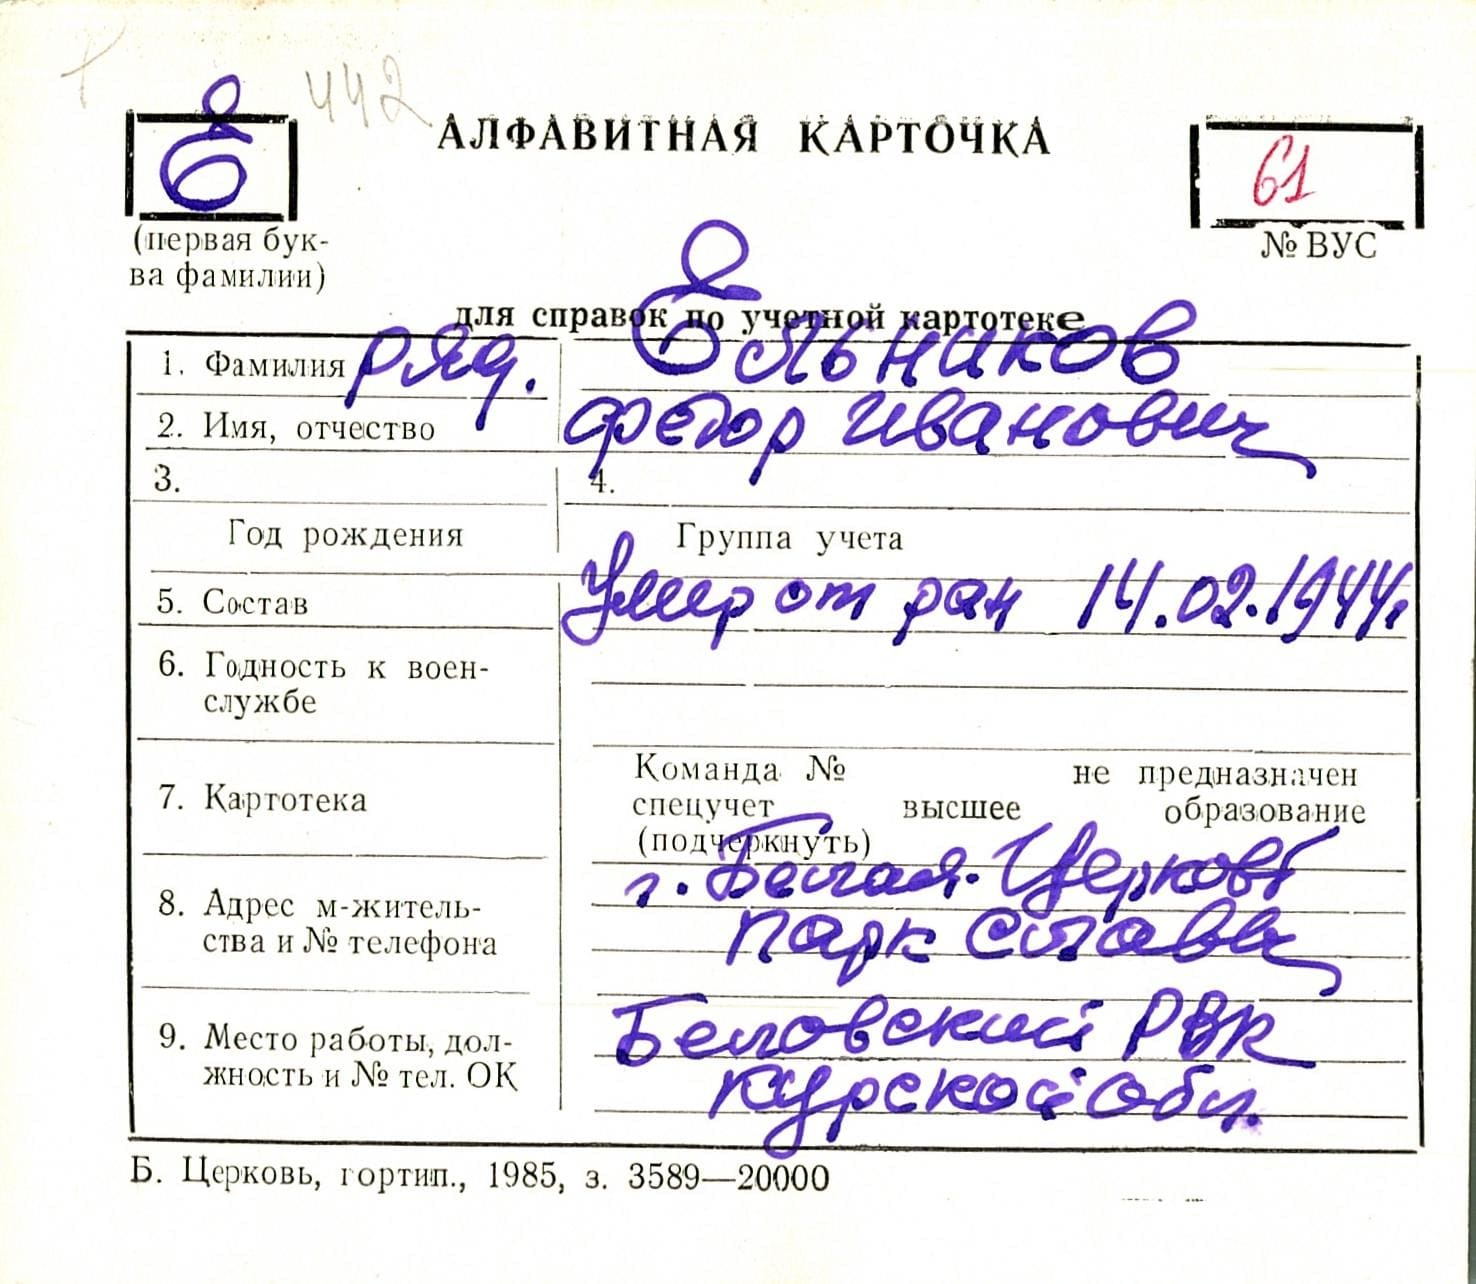 442
АЛФАВИТНАЯ КАРТОЧКА
61
(первая бук-
ва фамилии)
№ ВУС
для справок по учетной картотеке
1. Фамилия ряд.
2. Имя, отчество Федор Иванович
3. 4.
Год рождения Группа учета
5. Состав Умер от ран 14.02.1944г.
6. Годность к воен-
службе
Команда № не предназначен
7. Картотека спецучет высшее образование
(подчеркнуть)
г. Белая-Церковь
8. Адрес м-житель-
ства и № телефона парк Слава
9. Место работы, дол-
жность и № тел. ОК Беловский РВК
Курской обл.
Б. Церковь, гортип., 1985, з. 3589—20000